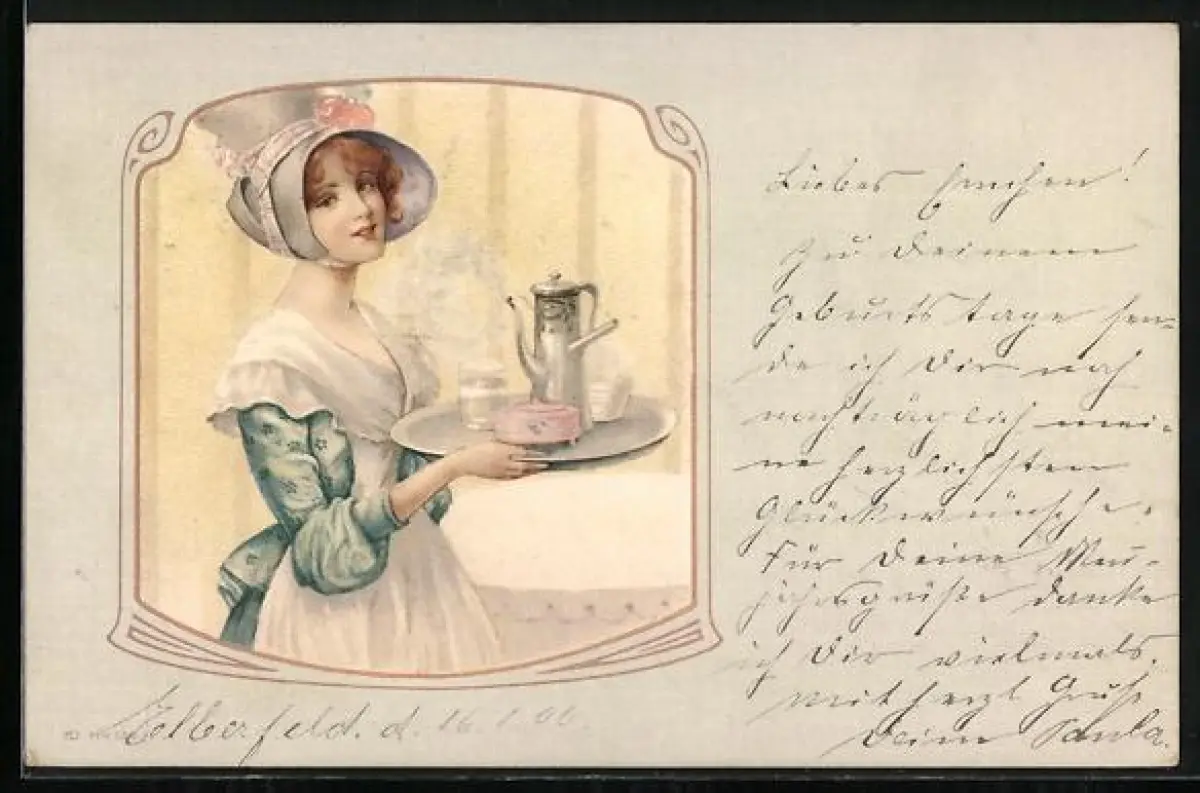 Liebes Ennchen!
Zu Deinem
Geburtstage sen-
de ich Dir noch
nachträglich mei-
ne herzlichsten
Glückwünsche.
für Deine Neu-
jahrsgrüße danke
ich Dir vielmals.
Mit herzl Gruß
Deine Paula.
Elberfeld. d. 16.1.06.